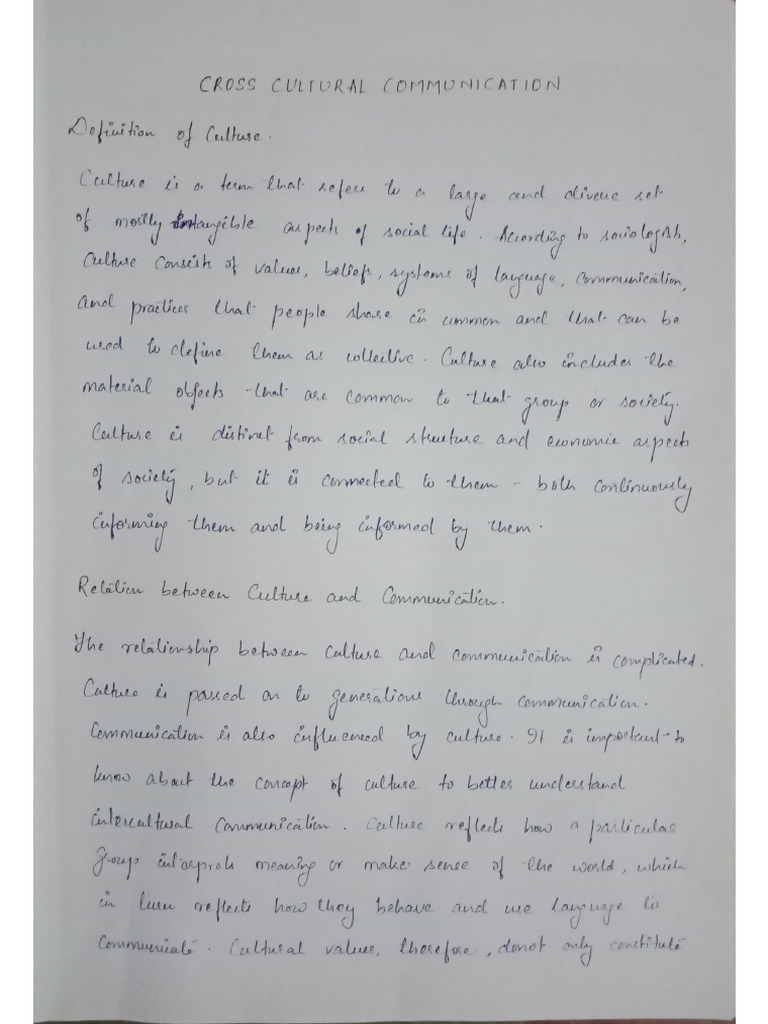 CROSS CULTURAL COMMUNICATION
Definition of Culture.
Culture is a term that refers to a large and diverse set
of mostly intangible aspects of social life. According to sociologists,
culture consists of values, beliefs, systems of language, communication,
and practices that people share in common and that can be
used to define them as collective. Culture also includes the
material objects that are common to that group or society.
Culture is distinct from social structure and economic aspects
of society, but it is connected to them - both continuously
informing them and being informed by them.
Relation between Culture and Communication.
The relationship between culture and communication is complicated.
Culture is passed on to generations through communication.
Communication is also influenced by culture. It is important to
know about the concept of culture to better understand
intercultural communication. Culture reflects how a particular
group interprets meaning or make sense of the world, which
in turn reflects how they behave and use language to
communicate. Cultural values, therefore, donot only constitute